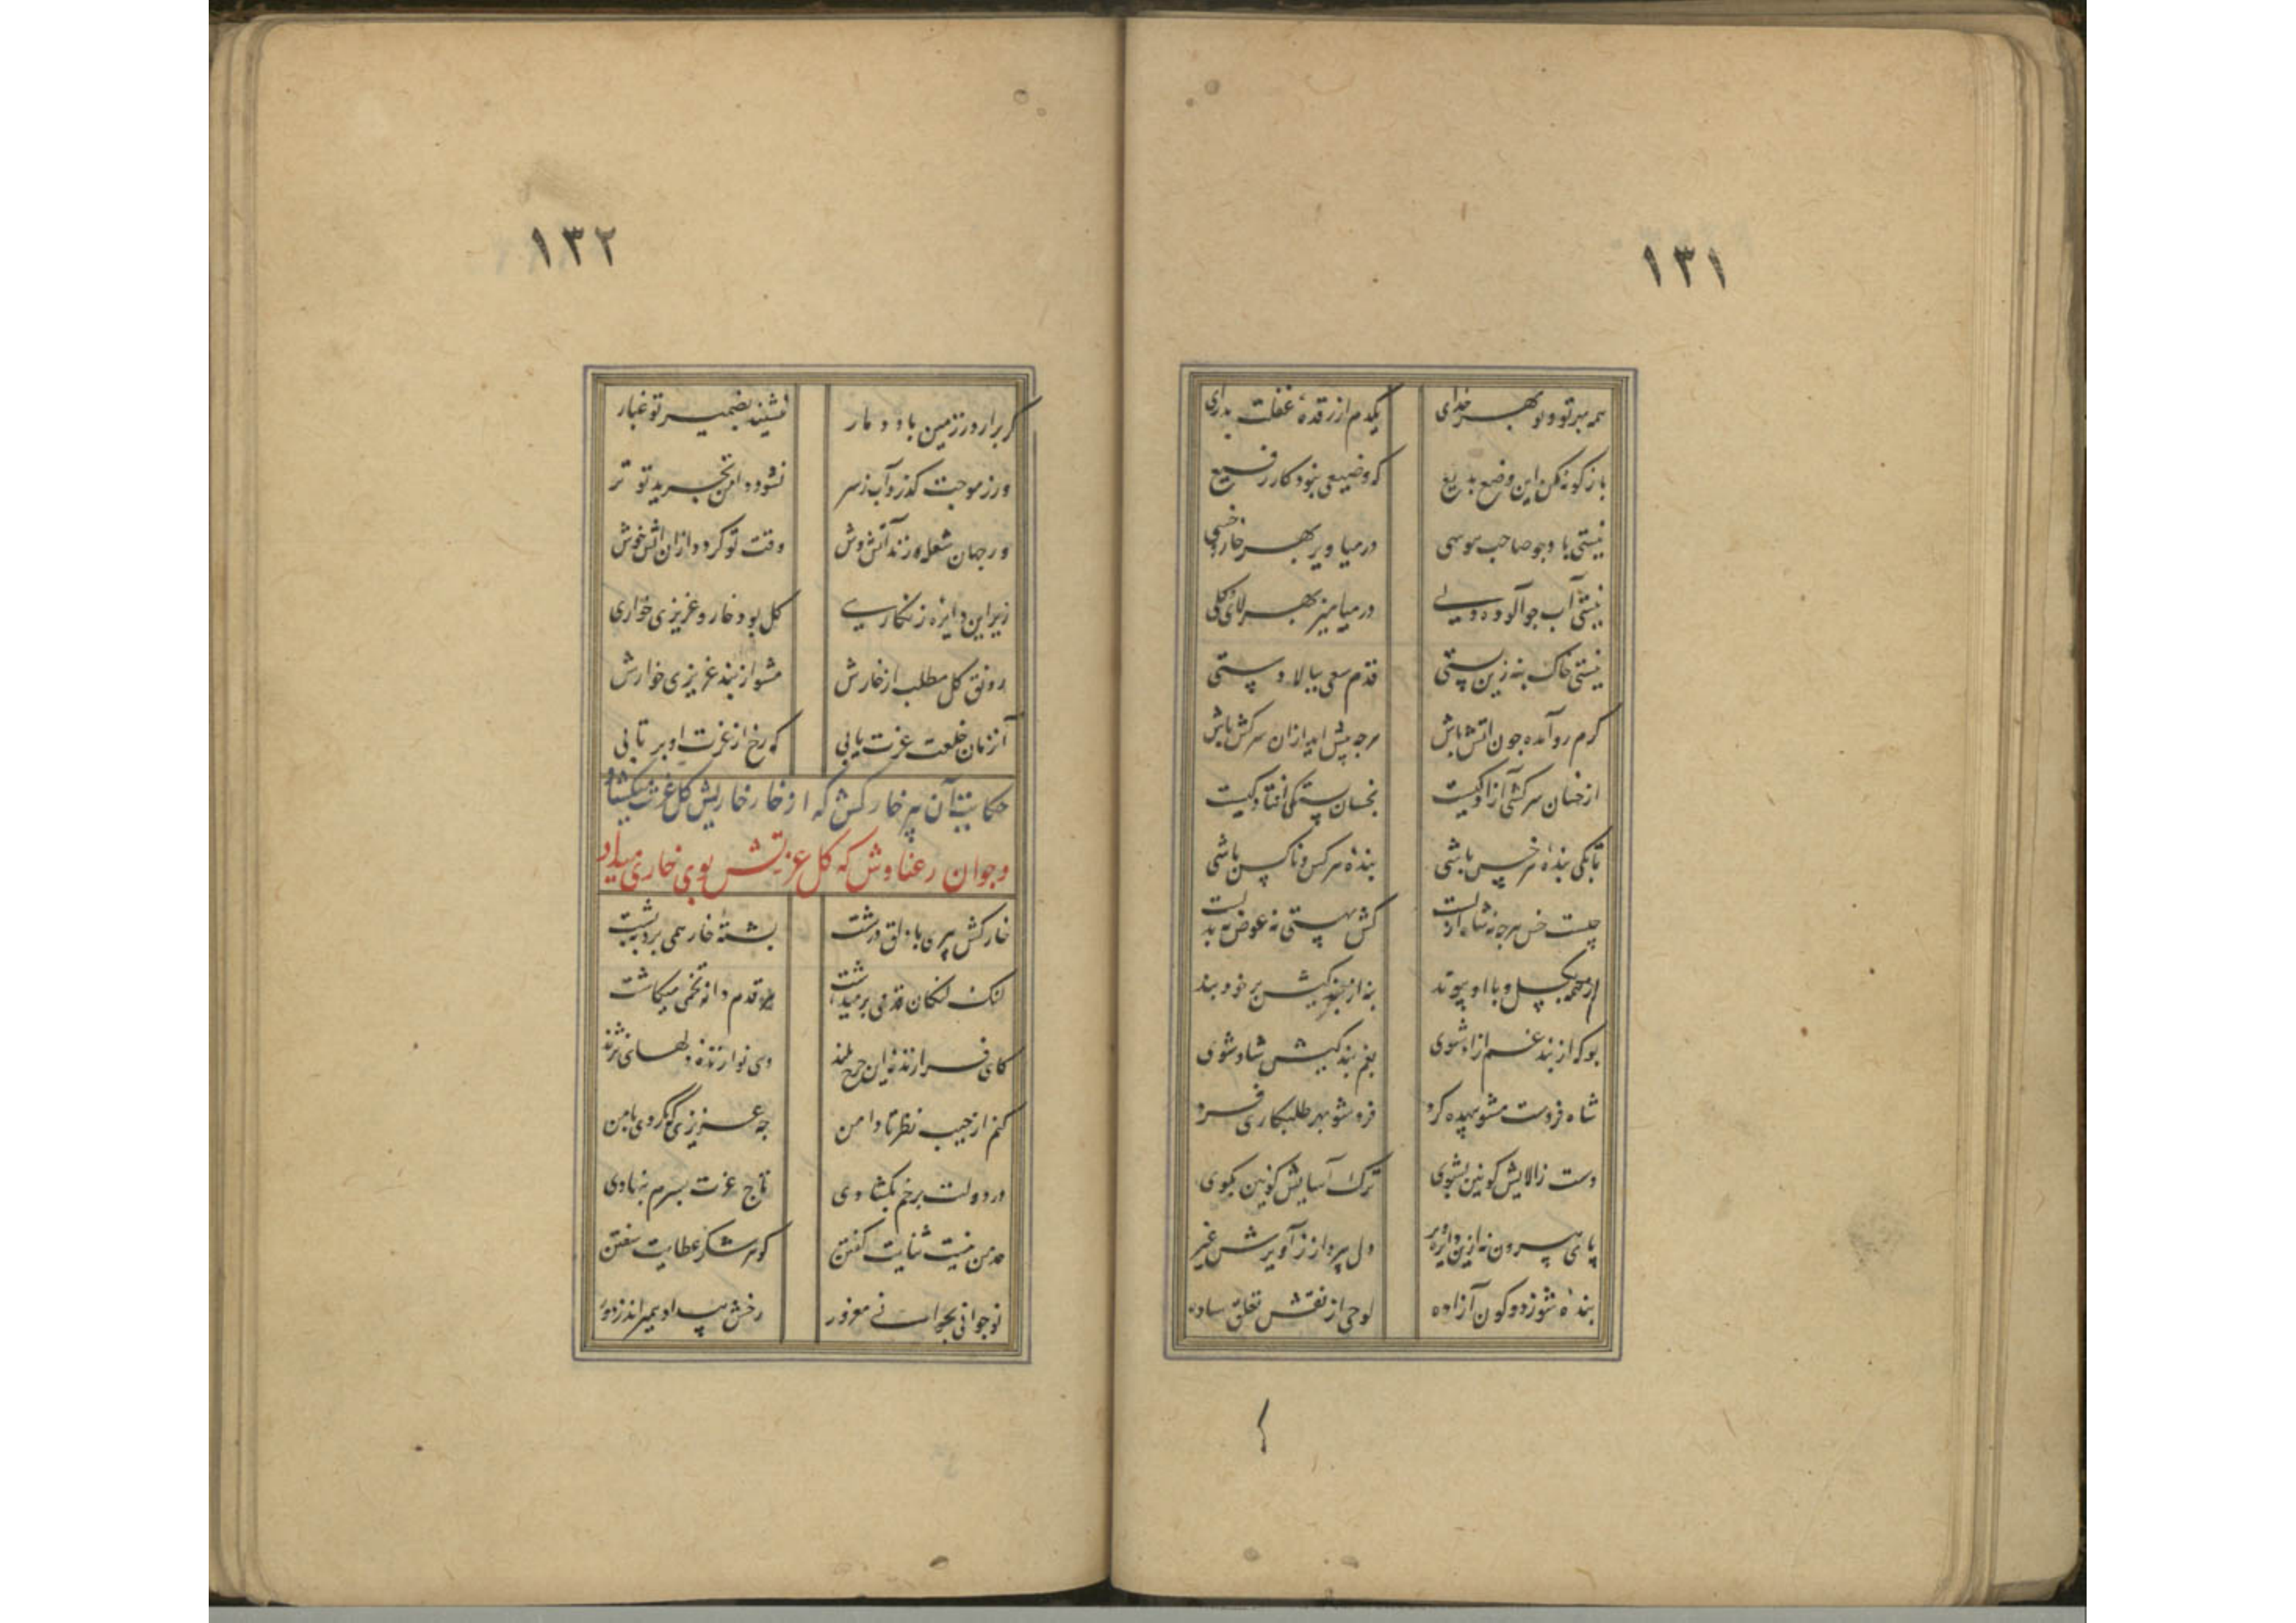 ۱۳۱
همه بهر تو و تو بهر خدای    یکدم از رقدهٔ غفلت بدرای
باز کونه مکن این وضع بدیع    که وضیعی نبود کار رفیع
نیستی باد چو صاحب هوسی    در میاویز بهر خار و خسی
نیستی آب چو آلوده دلی    در میامیز بهر لای و کلی
نیستی خاک بنه زین پستی    قدم سعی ببالا دستی
کرم رو آمده چون اتش باش    هرچه پیش اید ازان سرکش باش
از خسان سرکشی آزادکیست    بخسان پستکی افتادکیست
تا بکی بندهٔ هر خس باشی    بندهٔ هر کس و ناکس باشی
چیست خس هرچه نه شاه ازلست    کش بهستی نه عوض نه بدلست
از همه بکسل و با او پیوند    به از بند کیش بر خود بند
بو که از بند غم ازاد شوی    بغم بند کیش شاد شوی
شاه فردست مشو بیهده کرد    فرد شو بهر طلبکاری فرد
دست ز الایش کونین بشوی    ترک آسایش کونین بکوی
پای بیرون نه ازین دایره دیر    دل بپرداز ز آویزش غیر
بنده شو زدو کون آزاده    لوحی از نقش تعلق ساده
۱۳۲
کر برارد ز زمین باد دمار    ننشیند بضمیر تو غبار
ور ز موجت کذرد آب ز سر    نشود دامن تجرید تو تر
ور جهان شعله زند آتش وش    وقت تو کردد ازان اتش خوش
زیر این دایره زنکاری    کل بود خار و عزیزی خواری
رونق کل مطلب از خارش    مشو از بند عزیزی خوارش
آنزمان خلعت عزت یابی    که رخ از عزت او بر تابی
حکایت آن پیر خارکش که از خار خاریش کل عزت میکشاد
و جوان رعناوش که کل عزتش بوی خاری میداد
خارکش پیری با دلق درشت    پشتهٔ خار همی برد به پشت
لنک لنکان قدمی بر میداشت    هر قدم دانه تخمی میکاشت
کای فرازندهٔ این چرخ بلند    وی نوازندهٔ دلهای نژند
کنم از جیب نظر تا دامن    چه عزیزی که نکردی با من
در دولت برخم بکشادی    تاج عزت بسرم بنهادی
حد من نیست ثنایت کفتن    کوهر شکر عطایت سفتن
نوجوانی بجوانی مغرور    رخش پندار همیراند ز دور